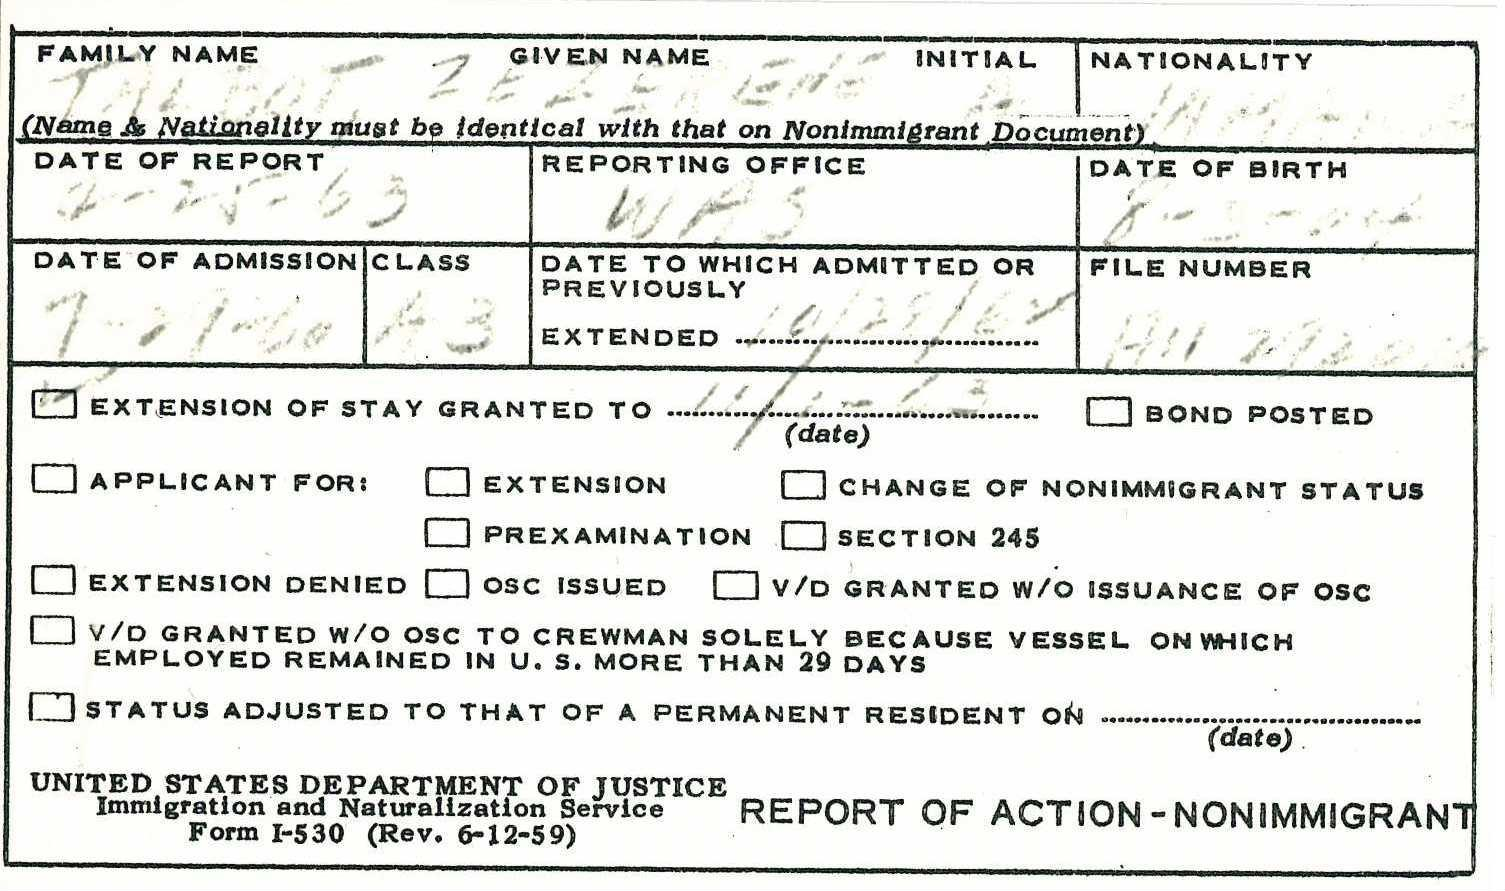 FAMILY NAME GIVEN NAME INITIAL NATIONALITY
TALBOT,
(Name & Nationality must be identical with that on Nonimmigrant Document)
DATE OF REPORT REPORTING OFFICE DATE OF BIRTH
2-25-63 WAS
DATE OF ADMISSION CLASS DATE TO WHICH ADMITTED OR FILE NUMBER
PREVIOUSLY
7-27-60 A3 EXTENDED 10/29/62
EXTENSION OF STAY GRANTED TO BOND POSTED
(date)
APPLICANT FOR: EXTENSION CHANGE OF NONIMMIGRANT STATUS
PREXAMINATION SECTION 245
EXTENSION DENIED OSC ISSUED V/D GRANTED W/O ISSUANCE OF OSC
V/D GRANTED W/O OSC TO CREWMAN SOLELY BECAUSE VESSEL ON WHICH
EMPLOYED REMAINED IN U. S. MORE THAN 29 DAYS
STATUS ADJUSTED TO THAT OF A PERMANENT RESIDENT ON
(date)
UNITED STATES DEPARTMENT OF JUSTICE
Immigration and Naturalization Service
Form I-530 (Rev. 6-12-59)
REPORT OF ACTION - NONIMMIGRANT